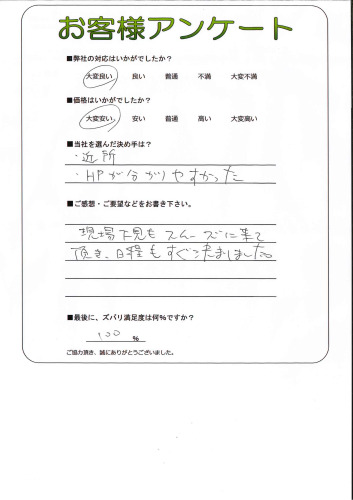 お客様アンケート
■弊社の対応はいかがでしたか?
大変良い 良い 普通 不満 大変不満
■価格はいかがでしたか?
大変安い 安い 普通 高い 大変高い
■当社を選んだ決め手は?
・近所
・HPが分かりやすかった
■ご感想・ご要望などをお書き下さい。
現場下見もスムーズに来て
頂き、日程もすぐ決まりました。
■最後に、ズバリ満足度は何%ですか?
100 %
ご協力頂き、誠にありがとうございました。